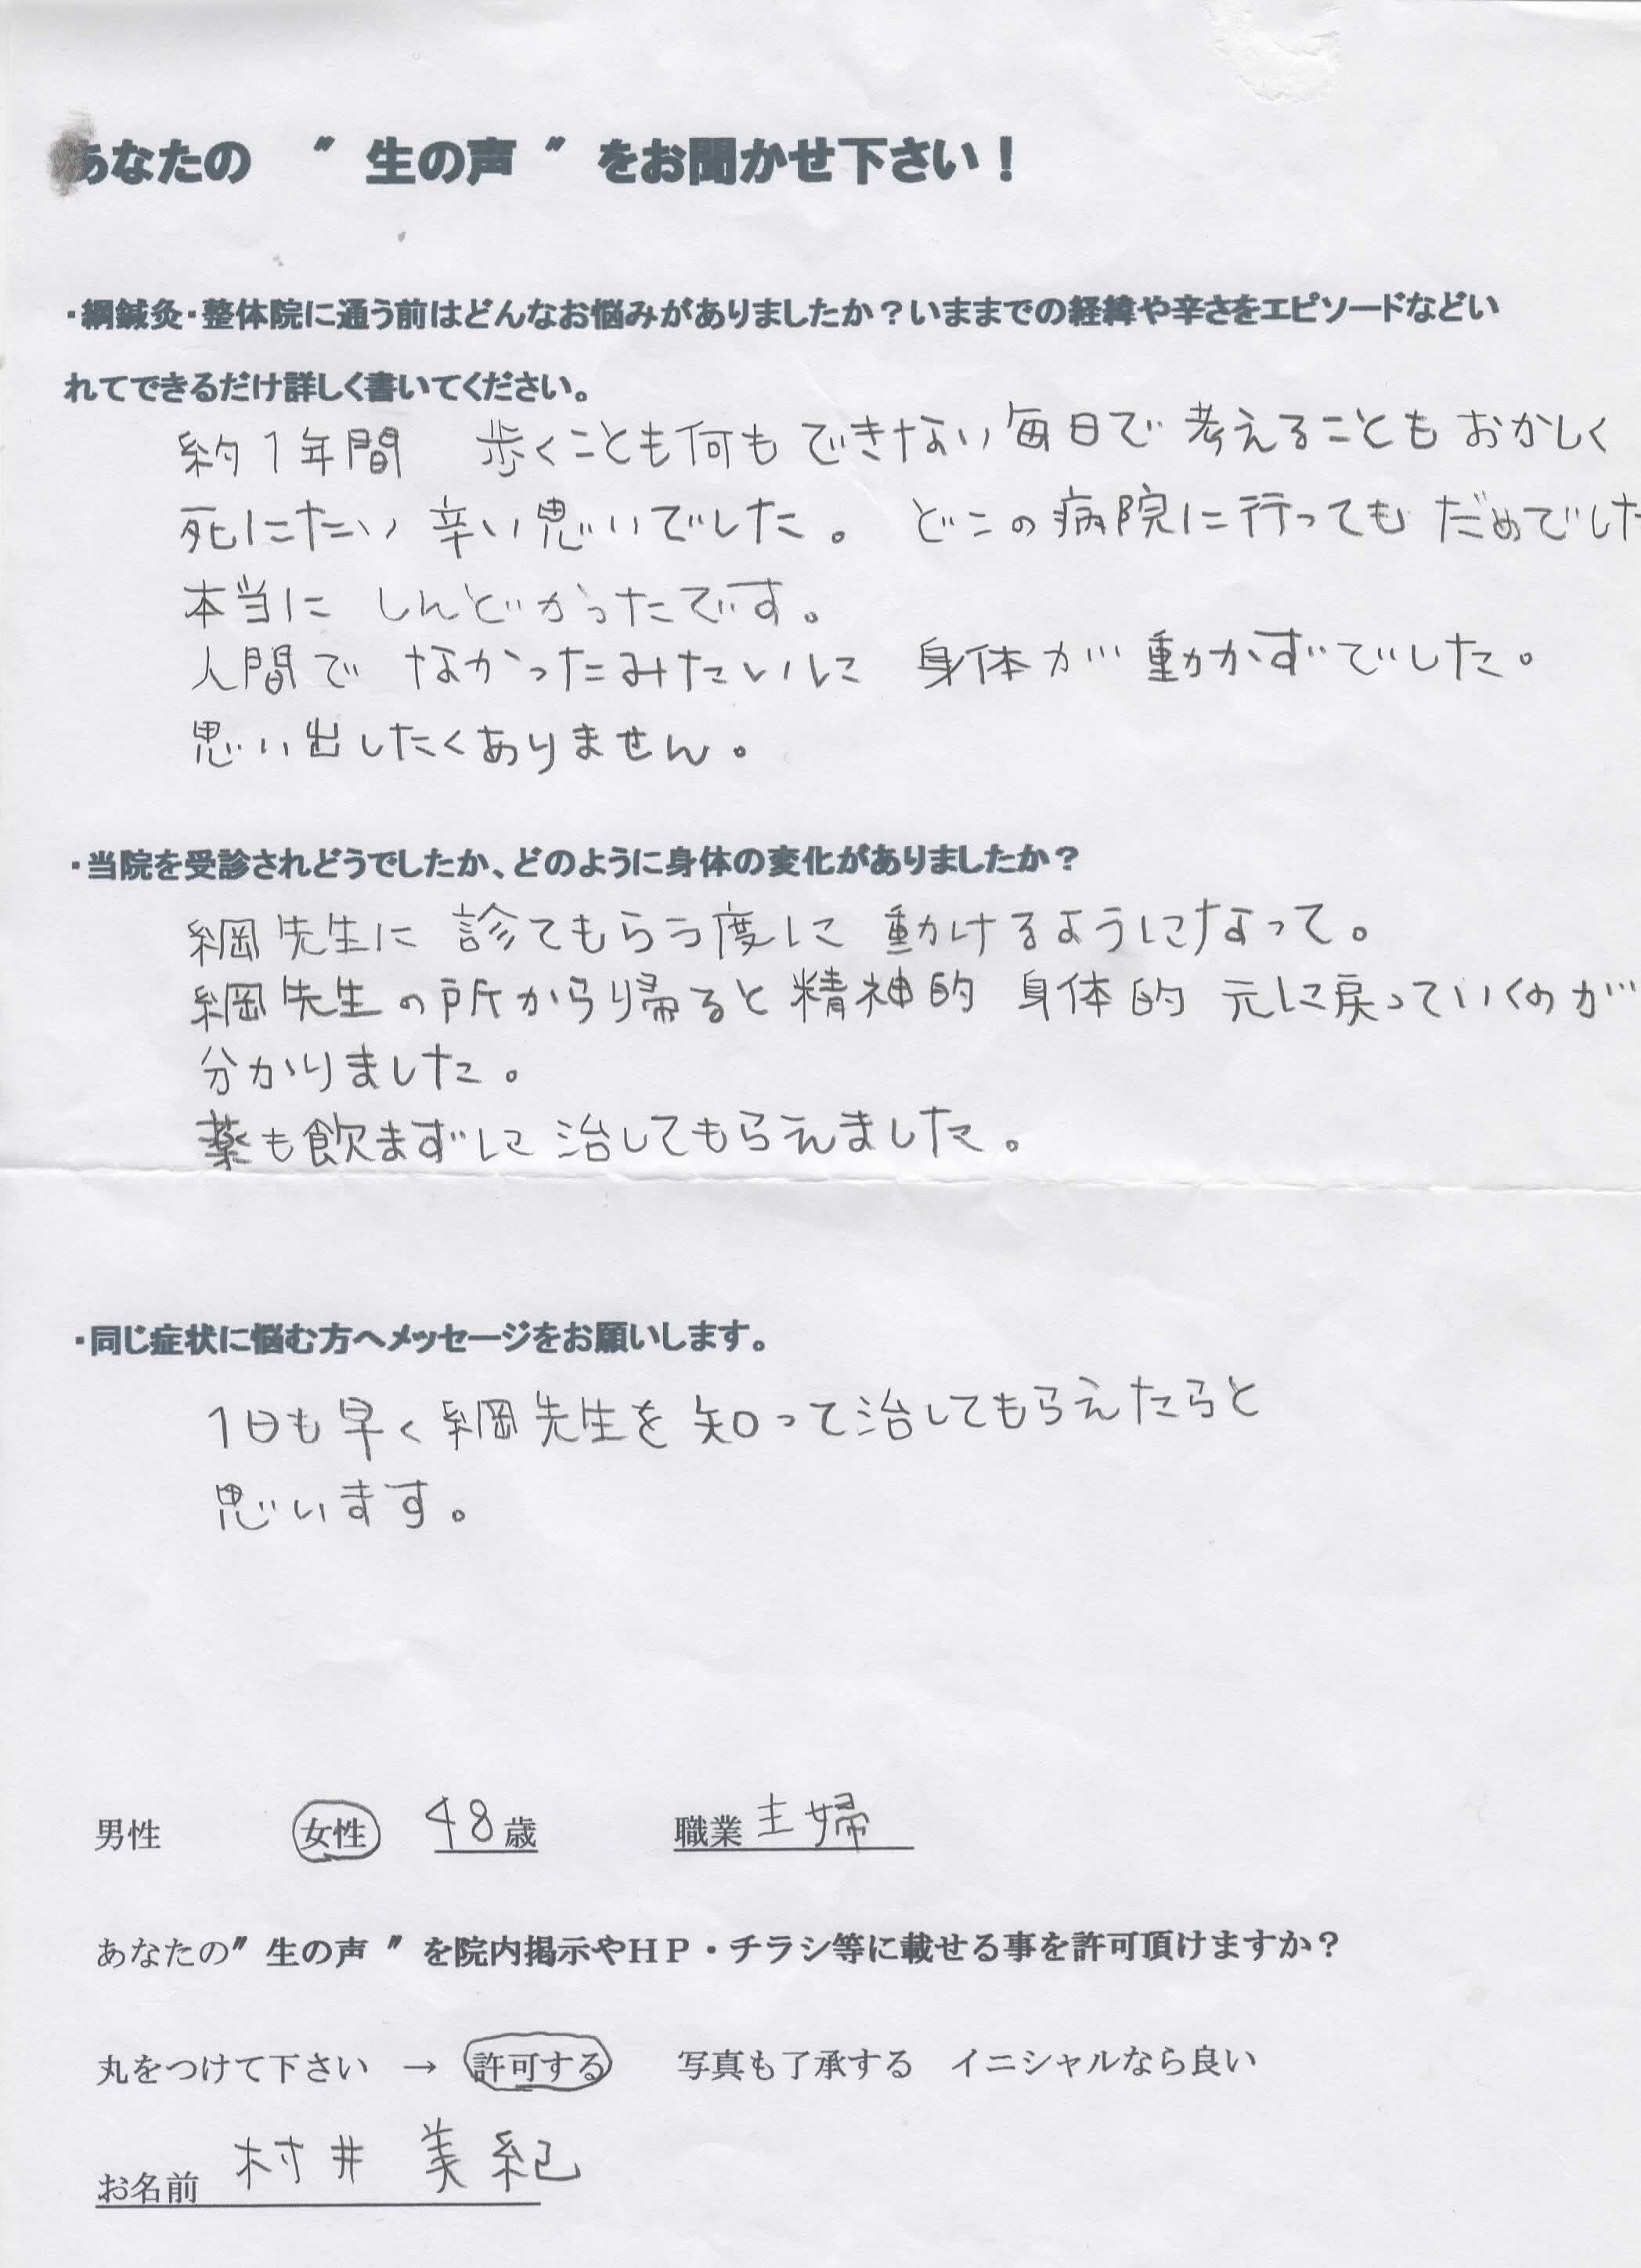 あなたの ″ 生の声 ″ をお聞かせ下さい！
・綱鍼灸・整体院に通う前はどんなお悩みがありましたか？いままでの経緯や辛さをエピソードなどい
れてできるだけ詳しく書いてください。
約1年間 歩くことも何もできない毎日で考えることもおかしく
死にたい 辛い思いでした。 どこの病院に行ってもだめでした
本当に しんどかったです。
人間で なかったみたいに 身体が動かずでした。
思い出したくありません。
・当院を受診されどうでしたか、どのように身体の変化がありましたか？
綱先生に 診てもらう度に 動けるようになって。
綱先生の所から帰ると精神的 身体的 元に戻っていくのが
分かりました。
薬も飲まずに 治してもらえました。
・同じ症状に悩む方へメッセージをお願いします。
1日も早く綱先生を知って治してもらえたらと
思います。
男性 女性 48歳 職業 主婦
あなたの″ 生の声 ″を院内掲示やＨＰ・チラシ等に載せる事を許可頂けますか？
丸をつけて下さい → 許可する 写真も了承する イニシャルなら良い
お名前 村井 美紀